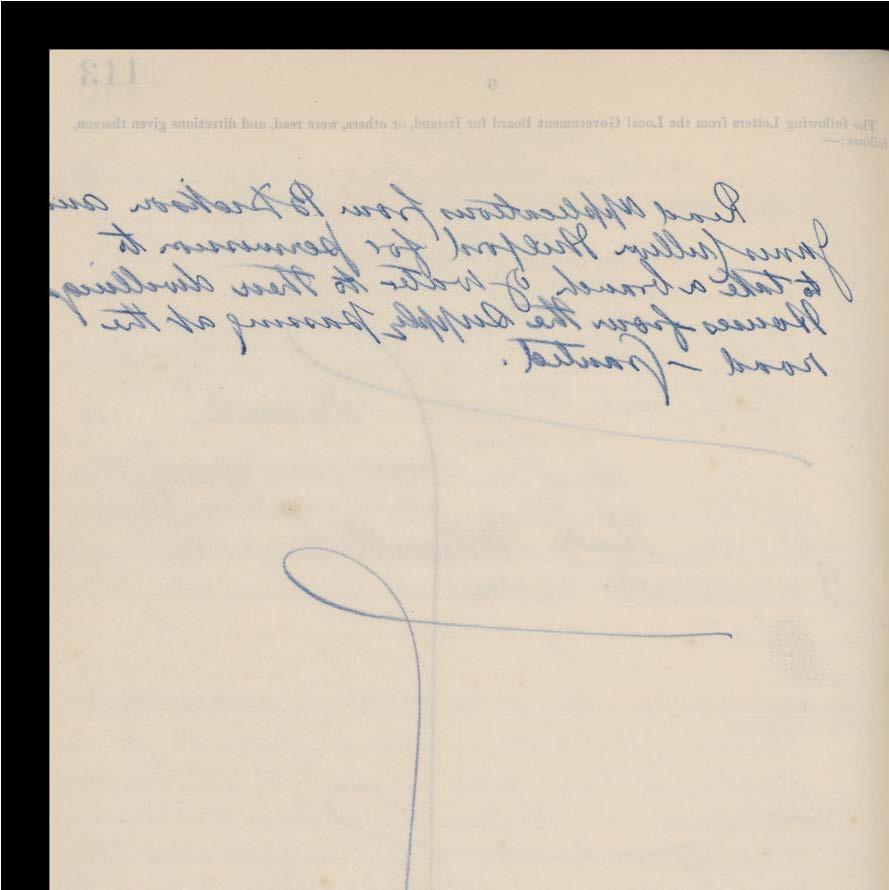 113
9
The following Letters from the Local Government Board for Ireland, or others, were read, and directions given thereon,
follows:—
Read applications from B Dickson
James Milford for permission to
to take a branch of water to their dwelling
Houses from the supply passing at the
road – Granted.